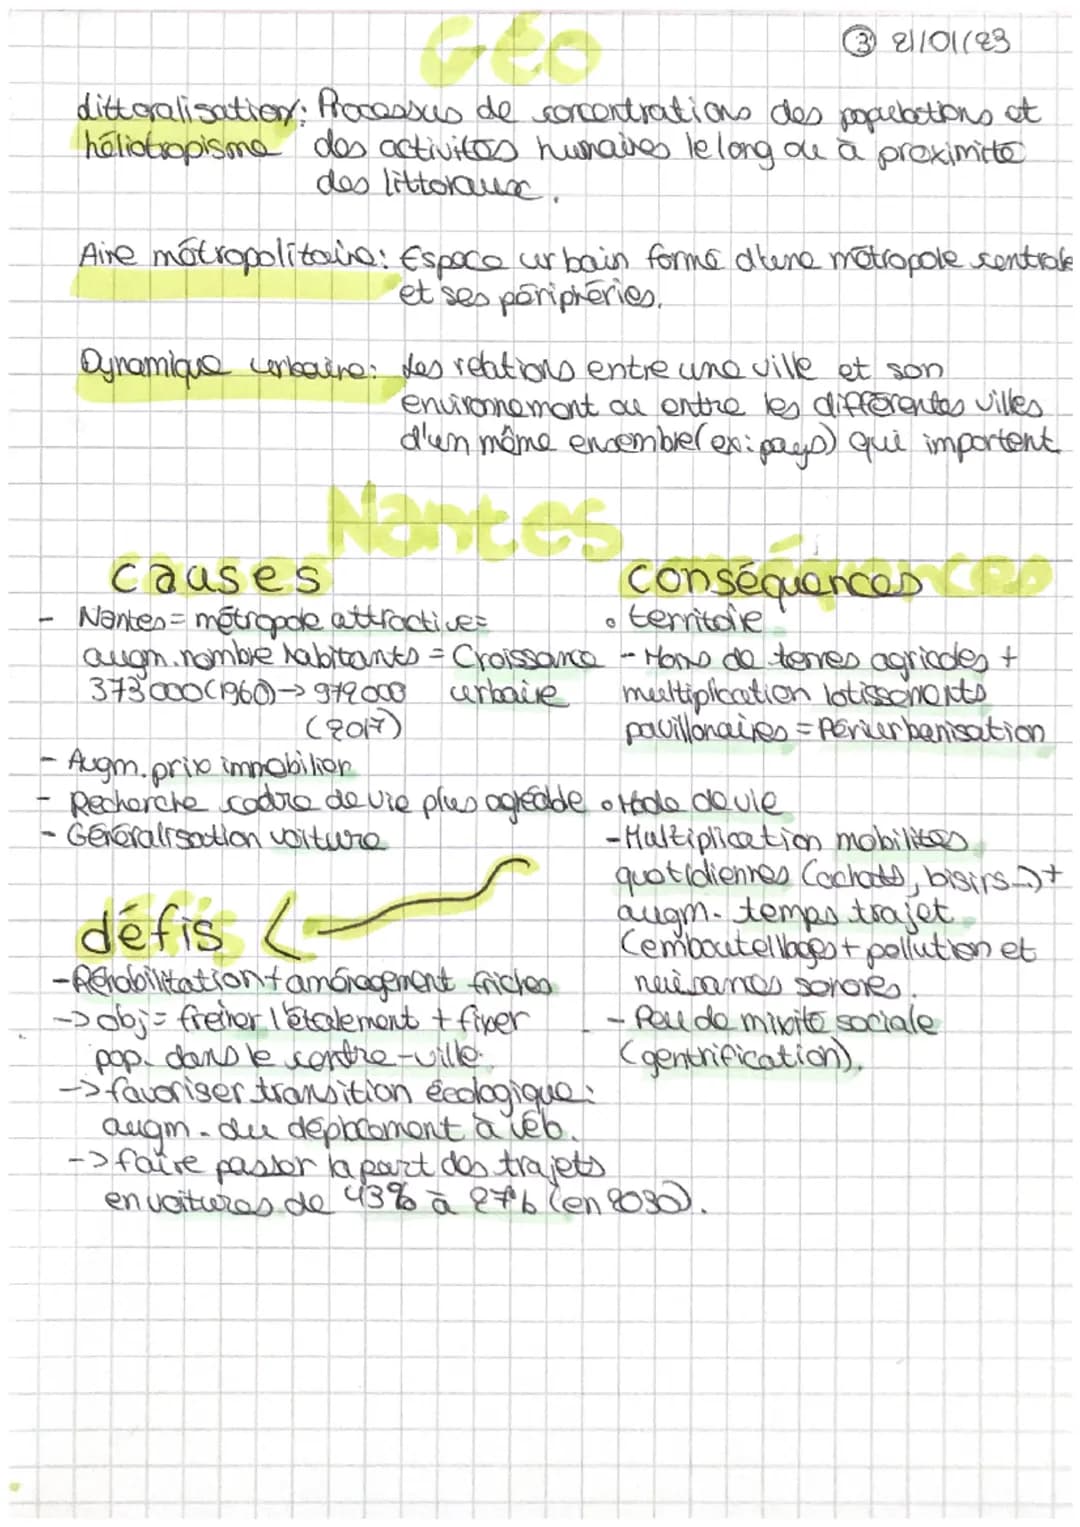 Géo
③ 21/01/23
littoralisation: Processus de concentrations des populations et
héliotropisme des activités humaines le long ou à proximité
des littoraux.
Aire métropolitaine: Espace urbain formé d'une métropole centrale
et ses périphéries.
Dynamique urbaine: des relations entre une ville et son
environnement ou entre les différentes villes
d'un même ensemble (ex: pays) qui importent
Nantes
causes
- Nantes = métropole attractive =
augm. nombre habitants = Croissance
373 000 (1960) -> 979 000 urbaine
(2017)
- Augm. prix immobilier
- Recherche cadre de vie plus agréable
- Généralisation voiture
défis <
- Réhabilitation + aménagement friches
-> obj = freiner l'étalement + fixer
pop. dans le centre-ville.
-> favoriser transition écologique:
augm. du déplacement à vélo.
-> faire passer la part des trajets
en voitures de 43% à 27% (en 2030).
conséquences
• territoire
- Moins de terres agricoles +
multiplication lotissements
pavillonaires = Périurbanisation
• Mode de vie
- Multiplication mobilités
quotidiennes (achats, loisirs...) +
augm. temps trajet
(embouteillages + pollution et
nuisances sonores.
- Peu de mixité sociale
(gentrification).